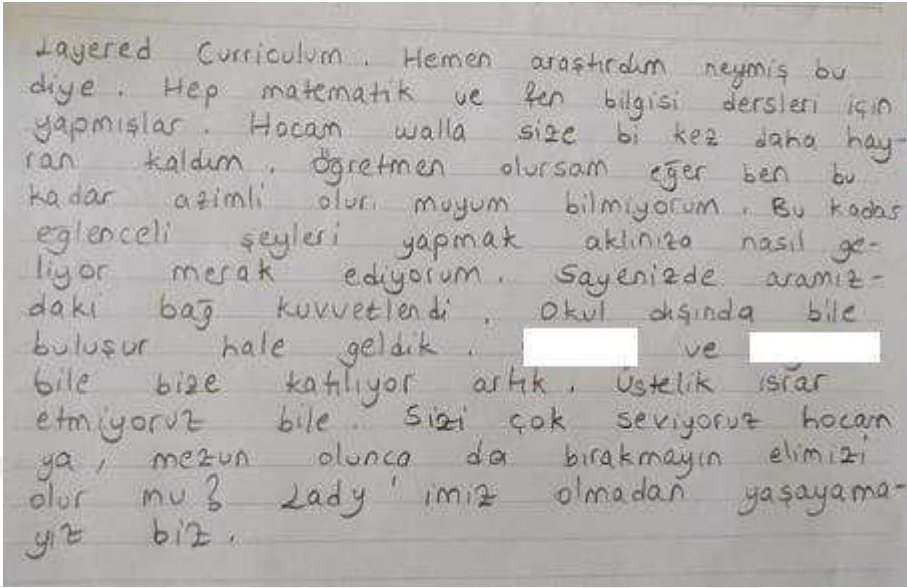 Layered Curriculum. Hemen araştırdım neymiş bu
diye. Hep matematik ve fen bilgisi dersleri için
yapmışlar. Hocam walla size bi kez daha hay-
ran kaldım. Öğretmen olursam eğer ben bu
kadar azimli olur muyum bilmiyorum. Bu kadar
eğlenceli şeyleri yapmak aklınıza nasıl ge-
liyor merak ediyorum. Sayenizde aramız-
daki bağ kuvvetlendi. Okul dışında bile
buluşur hale geldik. ve
bile bize katılıyor artık. Üstelik ısrar
etmiyoruz bile. Sizi çok seviyoruz hocam
ya, mezun olunca da bırakmayın elimizi
olur mu? Lady'imiz olmadan yaşayama-
yız biz.